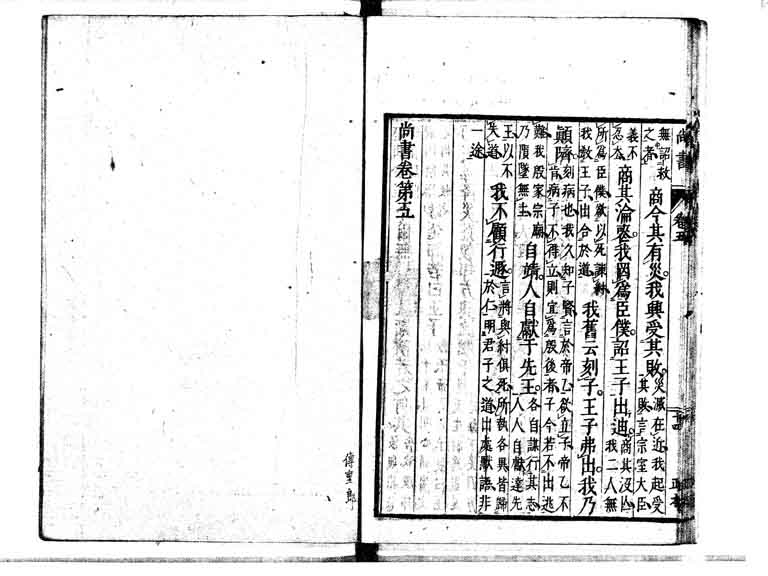 尚書
卷五
無詔救
之者
商今其有災我興受其敗
災滅在近我起受
其敗言宗室大臣
義不
忍去
商其淪喪我罔爲臣僕詔王子出迪
商其没亡
我二人無
所爲臣僕欲以死諫紂
我教王子出合於道
我舊云刻子王子弗出我乃
顛隮
刻病也我久知子賢言於帝乙欲立子帝乙不
肯病子不得立則宜爲殷後者子今若不出逃
難我殷家宗廟
乃隕墜無主
自靖人自獻于先王
各自謀行其志
人人自獻達先
王以不
失道
我不顧行遯
言將與紂俱死所執各異皆歸
於仁明君子之道出處默語非
一途
尚書卷第五